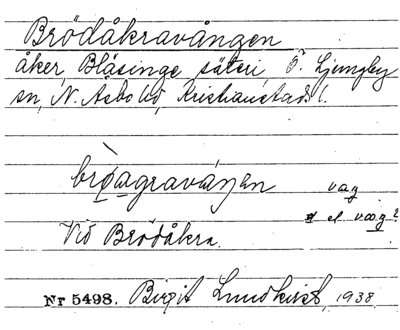 Brödåkravången
åker, Blåsinge säteri, Ö. Ljungby
sn, N. Åsbo hd, Kristianstads l.
brøagraváŋen vag
el væg?
Vid Brödåkra.
Nr 5498. Birgit Lundkvist, 1938